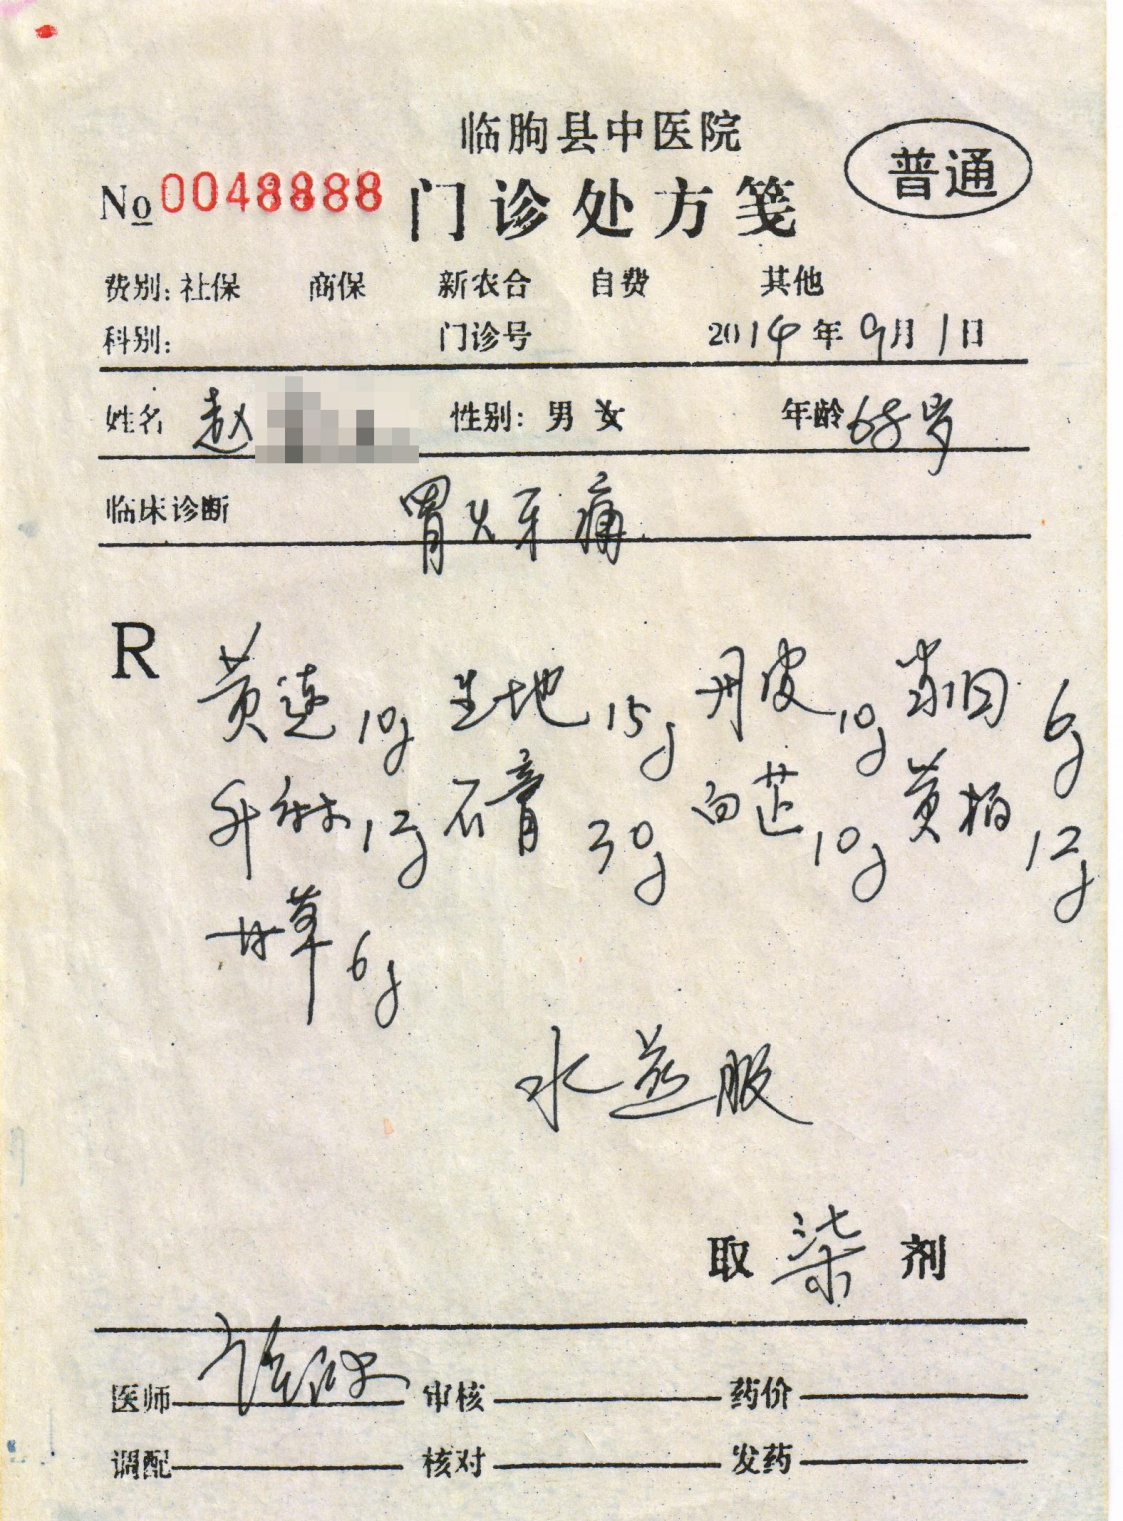 临朐县中医院
普通
No 0048888 门诊处方笺
费别: 社保 商保 新农合 自费 其他
科别: 门诊号 2014年9月1日
姓名 赵 性别: 男 女 年龄 68岁
临床诊断 胃火牙痛
R
黄连10g 生地15g 丹皮10g 当归6g
升麻12g 石膏30g 白芷10g 黄柏12g
甘草6g
水煎服
取 柒 剂
医师 审核 药价
调配 核对 发药